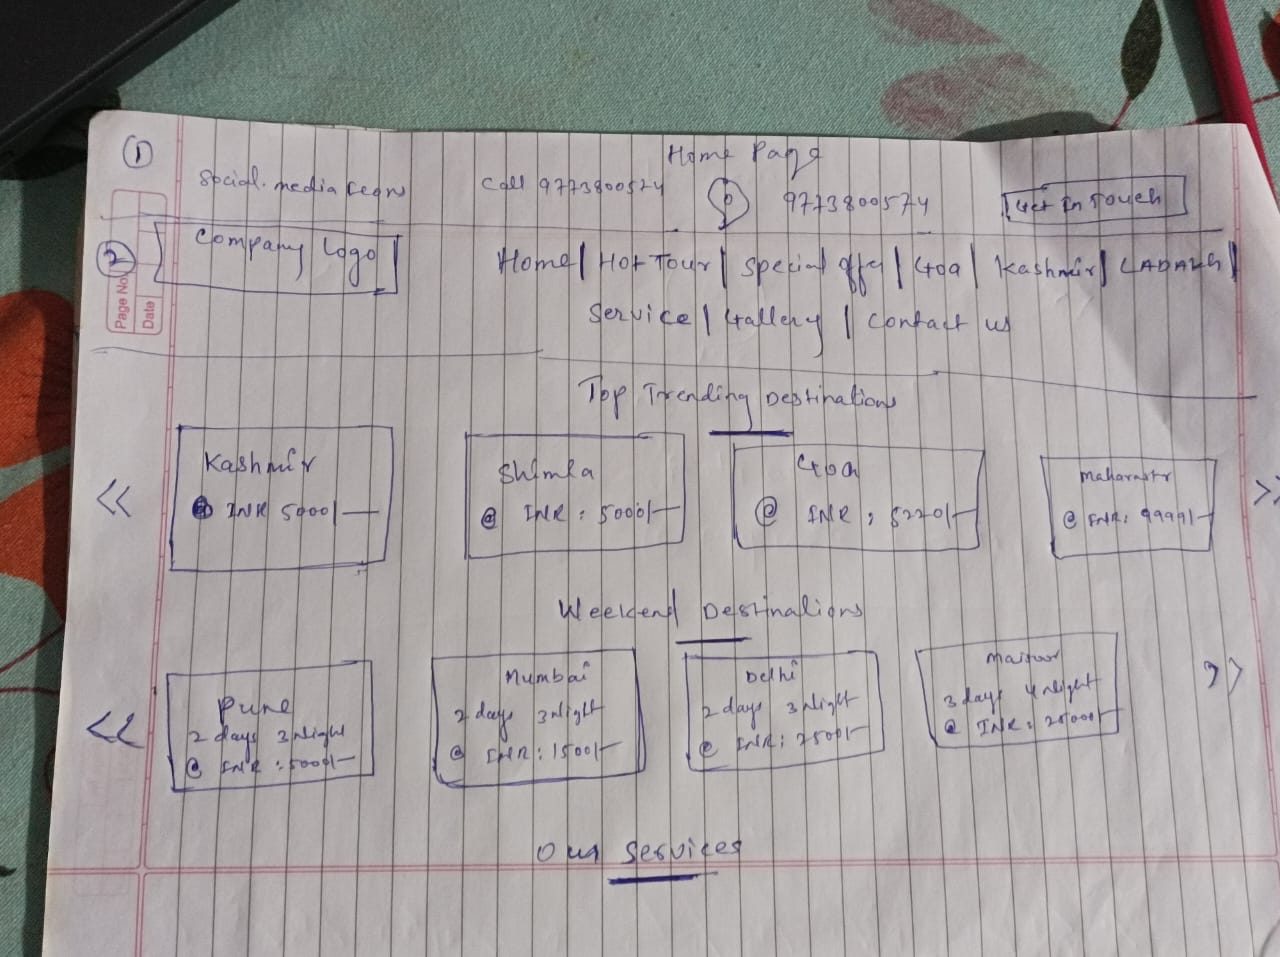 Home Page
①
Social media
Call 9773800574
9773800574
Get In Touch
②
Company Logo
Home | Hot Tour | Special | Goa | Kashmir | LADAKH |
Service | Gallery | Contact us
Page No
Date
Top Trending Destinations
<<
Kashmir
@ INR 5000/-
Shimla
@ INR : 5000/-
Goa
@ INR : 5220/-
@ INR: 9999/-
>>
Weekend Destinations
<<
Pune
2 days 3 Night
@ INR : 5000/-
Mumbai
2 days 3 Night
@ INR : 1500/-
Delhi
2 days 3 Night
@ INR : 2500/-
3 days 4 Night
@ INR :
>>
Our Services